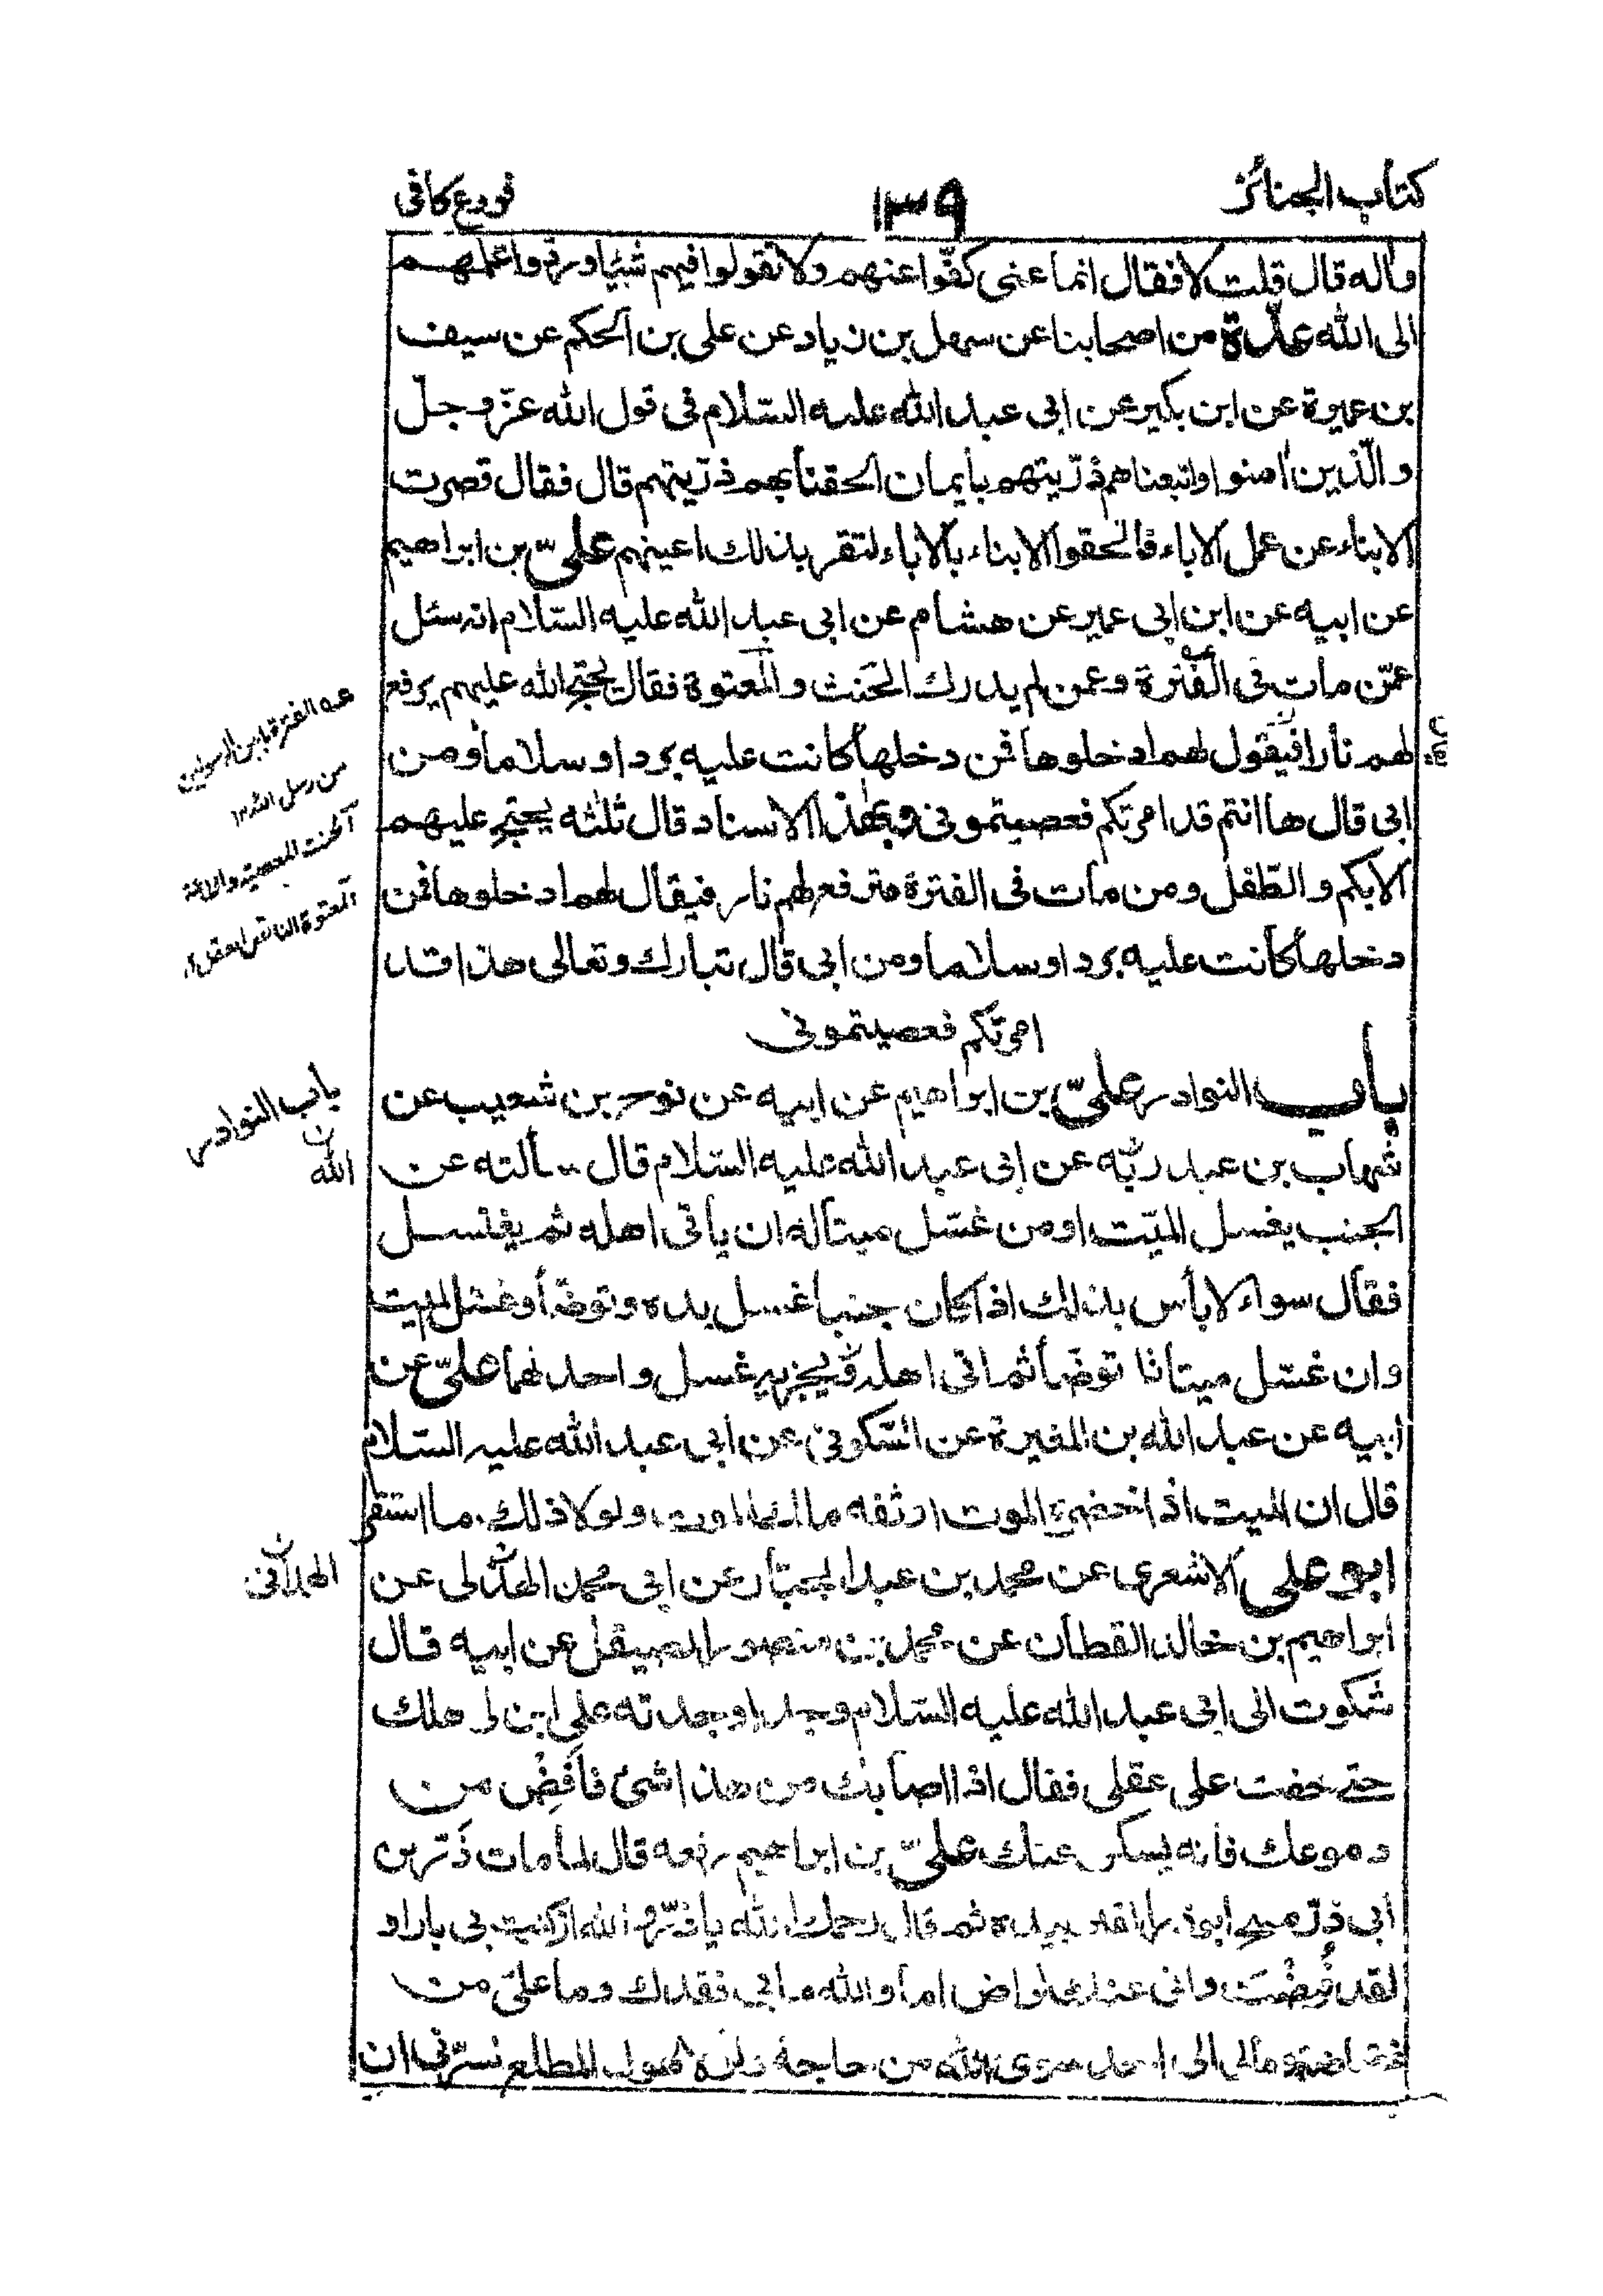 كتاب الجنائز
١٣٩
فروع كافي
واله قال قلت لا فقال انما عنى كفّوا عنهم ولا تقولوا فيهم شيئا وردّوا علمهم
الى الله عدّة من اصحابنا عن سهل بن زياد عن على بن الحكم عن سيف
بن عميرة عن ابن بكير عن ابى عبد الله عليه السّلام فى قول الله عزّ وجلّ
والّذين امنوا واتبعناهم ذرّيتهم بايمان الحقنا بهم ذرّيتهم قال فقال قصرت
الابناء عن عمل الاباء فالحقوا الابناء بالاباء لتقر بذلك اعينهم علىّ بن ابراهيم
عن ابيه عن ابن ابى عمير عن هشام عن ابى عبد الله عليه السّلام انه سئل
عمّن مات فى الفترة وعمن لم يدرك الحنث والمعتوه فقال يحتج الله عليهم يرفع
لهم نارا فيقول لهم ادخلوها فمن دخلها كانت عليه بردا وسلاما ومن
ابى قال ها انتم قد امرتكم فعصيتمونى وبهذا الاسناد قال ثلثه يحتج عليهم
الابكم والطّفل ومن مات فى الفترة فترفع لهم نار فيقال لهم ادخلوها فمن
دخلها كانت عليه بردا وسلاما ومن ابى قال تبارك وتعالى هذا قد
امرتكم فعصيتمونى
باب النوادر علىّ بن ابراهيم عن ابيه عن نوح بن شعيب عن
شهاب بن عبد ربّه عن ابى عبد الله عليه السّلام قال سألته عن
الجنب يغسل الميّت او من غسّل ميتا له ان يأتى اهله ثم يغتسل
فقال سواء لا بأس بذلك اذا كان جنبا غسل يده وتوضّأ وغسل الميت
وان غسّل ميتا توضّأ ثم اتى اهله ويجزيه غسل واحد لهما علىّ عن
ابيه عن عبد الله بن المغيرة عن السّكونى عن ابى عبد الله عليه السّلام
قال ان الميت اذا حضره الموت اوثقه ملك الموت ولولا ذلك ما استقر
ابو على الاشعرى عن محمد بن عبد الجبّار عن ابى محمد الهذلى عن
ابراهيم بن خالد القطان عن محمد بن منصور الصيقل عن ابيه قال
شكوت الى ابى عبد الله عليه السّلام وجدا وجدته على ابن لى هلك
حتى خفت على عقلى فقال اذا اصابك من هذا شئ فأفِضْ من
دموعك فانه يسكن عنك علىّ بن ابراهيم رفعه قال لما مات ذَرّ بن
ابى ذرّ مسح ابوذر القبر بيده ثم قال رحمك الله يا ذرّ والله ان كنت بى بارا و
لقد قُبِضْتَ وانى عنك لراض اما والله ما بى فقدك وما علىّ من
غضاضة ومالى الى احد سوى الله من حاجة ولولا هول المطلع لسرّنى ان
من رسل الله ١٢
باب النوادر
الله